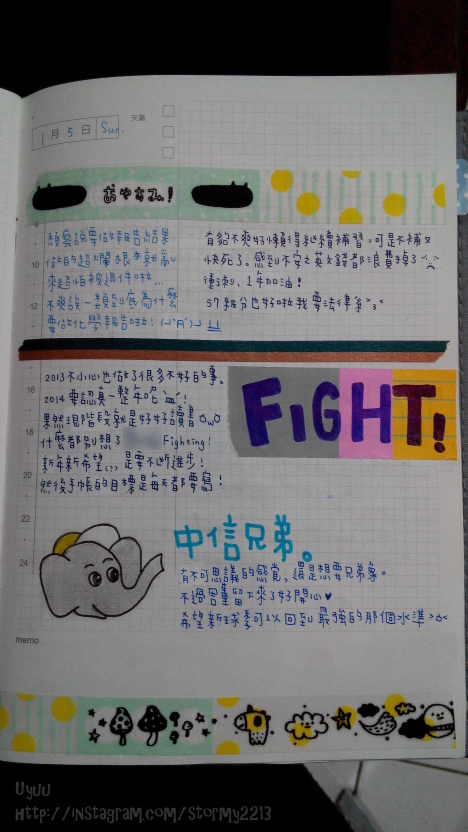 1月5日 Sun. 天氣
おやすみ!
8
類炎說要做報告結果
做的超爛根本就亂
來超怕被退件啦...
不爽說一類到底為什麼
要做化學報告啦!
有夠不爽好懶得繼續補習,可是不補又
快死了。感到不安,英文錯都浪費掉了
衝刺,1年加油!
57級分也好啦我要法律系>3<
10
12
2013不小心也做了很多不好的事。
2014要認真一整年呢
果然現階段就是好好讀書OwO
什麼都別想了 Fighting!
新年新希望,,,是要不斷進步!
然後手帳的目標是每天都要寫!
FIGHT!
16
18
20
22
24
中信兄弟。
有不可思議的感覺,還是想要兄弟象。
不過周董留下來了好開心♥
希望新球季可以回到最強的那個水準>o<
memo
UyUU
Http://instagram.com/Stormy2213